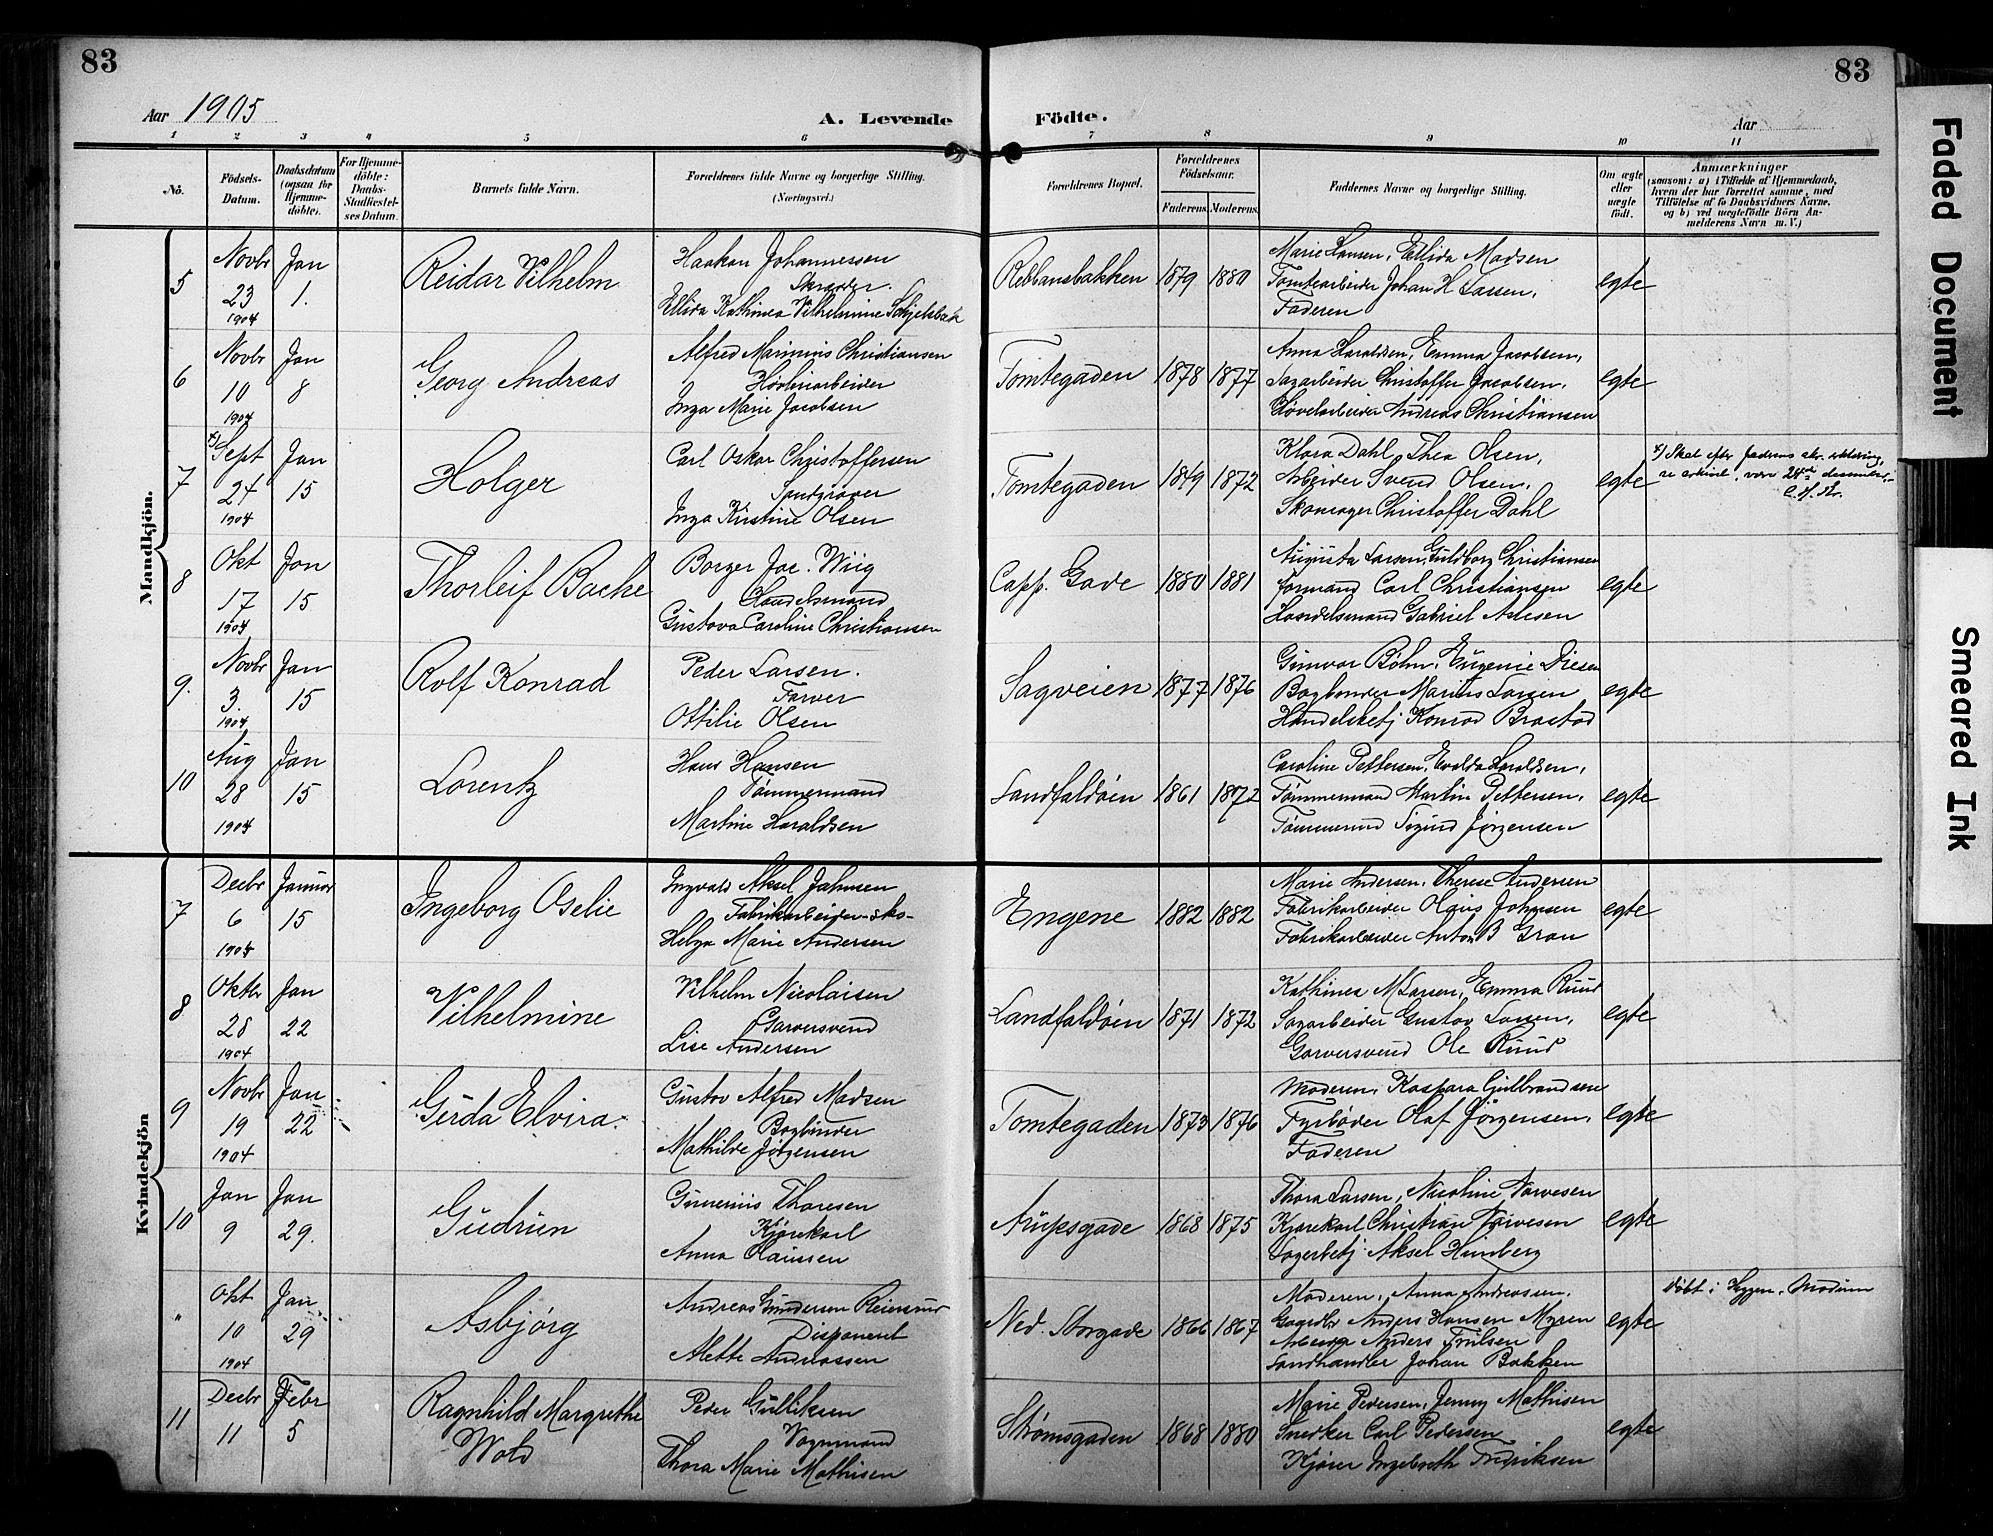 83
83
Aar 1905
A. Levende
Födte.
Aar
1 2 3 4 5 6 7 8 9 10 11
No.
Födsels-
Datum.
Daabsdatum
(ogsaa for
Hjemme-
döbte).
For Hjemme-
döbte:
Daabs-
Stadfæstel-
ses Datum.
Barnets fulde Navn.
Forældrenes fulde Navne og borgerlige Stilling.
(Næringsvei.)
Forældrenes Bopæl.
Forældrenes
Födselsaar.
Faderens. Moderens.
Faddernes Navne og borgerlige Stilling.
Om ægte
eller
uægte
født.
Anmærkninger
(saasom: a) i Tilfælde af Hjemmedaab,
hvem der har forrettet samme, med
Tilföielse af to Daabsvidners Navne,
og b) ved uægtefödte Börn An-
melderens Navn m.V.)
Mandkjön.
5
Novbr
23
1904
Jan
1.
Reidar Vilhelm
Haakon Johannessen
Skræder.
Ellida Kathinea Vilhelmine
Rebbansbakken
1879
1880
Marie Larsen, Ellida Madsen
Tomtearbeider Johan H Larsen,
Faderen
egte
6
Novbr
10
1904
Jan
8
Georg Andreas
Alfred Marinius Christiansen
Høvleriarbeider
Inga Marie Jacobsen
Tomtegaden
1878
1877
Anna Haraldsen, Emma Jacobsen,
Sagarbeider Christoffer Jacobsen,
Høvelarbeider Andreas Christiansen
egte
7
x) Sept
24
1904
Jan
15
Holger
Carl Oskar Christoffersen
Sandgraver
Inga Kristine Olsen
Tomtegaden
1849
1872
Klara Dahl, Thea Olsen,
Arbeider Svend Olsen,
Skomager Christoffer Dahl
egte
x) Skal efter faderens skr. erklæring,
se arkivet, være 24de december.
8
Okt
17
1904
Jan
15
Thorleif Bache
Borger Jac. Wiig
Handelsmand
Gustava Caroline Christiansen
Capp. Gade
1880
1881
Augusta Larsen, Guldborg Christiansen
formand Carl Christiansen
Handelsmand Gabriel Aslesen
egte
9.
Novbr
3.
1904
Jan
15
Rolf Konrad
Peder Larsen.
Farver
Ottilie Olsen
Sagveien
1877
1876
Gunvor Bøhn, Eugenie Diesen
Bogbinder Marius Larsen
Handelsbetj Konrad Brastad
egte
10
Aug
28
1904
Jan
15
Lorentz
Hans Hansen
Tømmermand
Martine Haraldsen
Landfaldøen
1861
1872
Caroline Pettersen, Evalda Haraldsen,
Tømmermand Martin Pettersen,
Tømmermd Sigurd Jørgensen
egte
Kvindekjön
7
Decbr
6
1904
Januar
15
Ingeborg Oselie
Ingvald Aksel Johnsen
Fabrikarbeider-sko-
Helga Marie Andersen
Engene
1882
1882
Marie Andersen, Therese Andersen
Fabrikarbeider Hans Johnsen
Fabrikarbeider Anton B Gran
egte
8
Oktbr
28
1904
Jan
22
Vilhelmine
Vilhelm Nicolaisen
Garversvend
Lise Andersen
Landfaldøen
1871
1872
Kathinea M Larsen, Emma Ruud
Sagarbeider Gustav Larsen,
Garversvend Ole Ruud
egte
9
Novbr
19
1904
Jan
22
Gerda Elvira
Gustav Alfred Madsen
Bogbinder
Mathilde Jørgensen
Tomtegaden
1873
1876
Moderen, Kaspara Gulbrandsen
Fyrbøder Olaf Jørgensen,
Faderen
egte
10
Jan
9
Jan
29.
Gudrun
Gunerius Thoresen
Kjørekarl
Anna Hansen
Arupsgade
1868
1875
Thora Larsen, Nicoline Narvesen
Kjørekarl Christian Narvesen
Lagerbetj. Aksel Himberg
egte
"
Okt
10
1904
Jan
29
Asbjørg
Andreas Gundersen Reiersrud
Disponent
Alette Andreassen
Ned. Storgade
1866
1867
Moderen, Anna Andreassen,
Gaardbr Anders Hansen Myren
Anders Trulsen
Landhandler Johan Bakken
egte
døbt i Heggen, Modum
11
Decbr
11
Febr
5
Ragnhild Margrethe
Wold
Peder Gulliksen
Vognmand
Thora Marie Mathisen
Strømsgaden
1868
1880
Marie Pedersen, Jenny Mathisen
Snedker Carl Pedersen
Kjører Ingebreth Fredriksen
egte
Faded Document
Smeared Ink